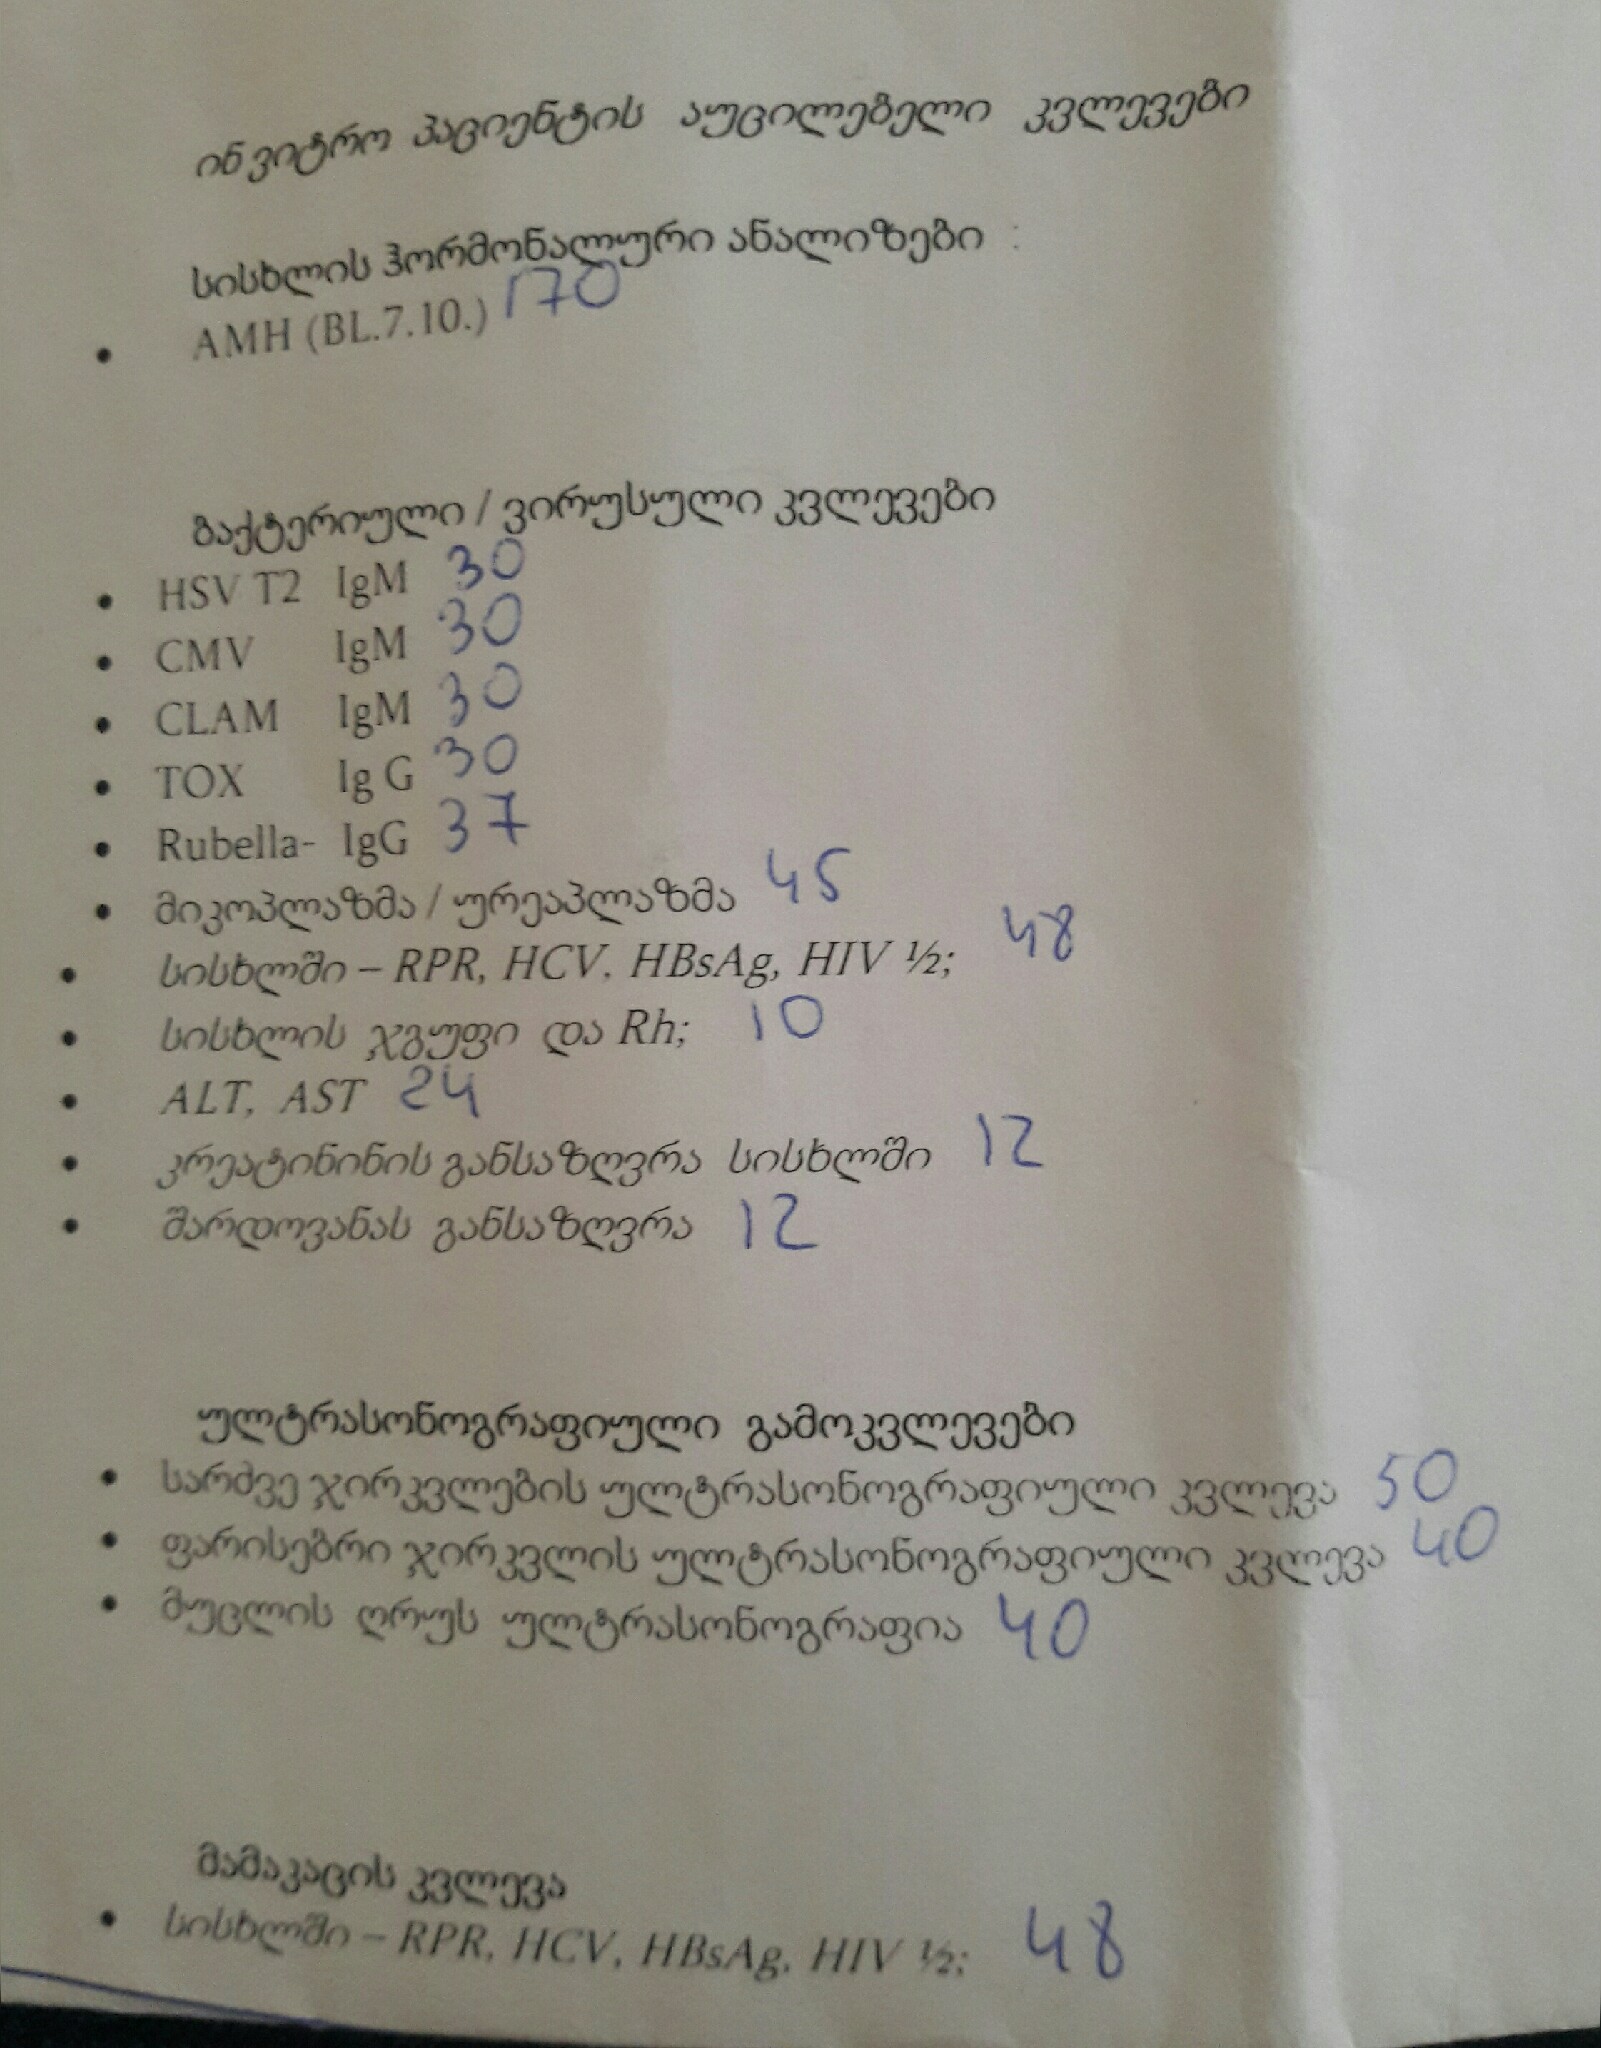 ინვიტრო პაციენტის აუცილებელი კვლევები
სისხლის ჰორმონალური ანალიზები :
• AMH (BL.7.10.) 170
ბაქტერიული / ვირუსული კვლევები
• HSV T2 IgM 30
• CMV IgM 30
• CLAM IgM 30
• TOX Ig G 30
• Rubella- IgG 37
• მიკოპლაზმა / ურეაპლაზმა 45
• სისხლში – RPR, HCV, HBsAg, HIV ½; 48
• სისხლის ჯგუფი და Rh; 10
• ALT, AST 24
• კრეატინინის განსაზღვრა სისხლში 12
• შარდოვანას განსაზღვრა 12
ულტრასონოგრაფიული გამოკვლევები
• სარძევე ჯირკვლების ულტრასონოგრაფიული კვლევა 50
• ფარისებრი ჯირკვლის ულტრასონოგრაფიული კვლევა 40
• მუცლის ღრუს ულტრასონოგრაფია 40
მამაკაცის კვლევა
• სისხლში – RPR, HCV, HBsAg, HIV ½; 48